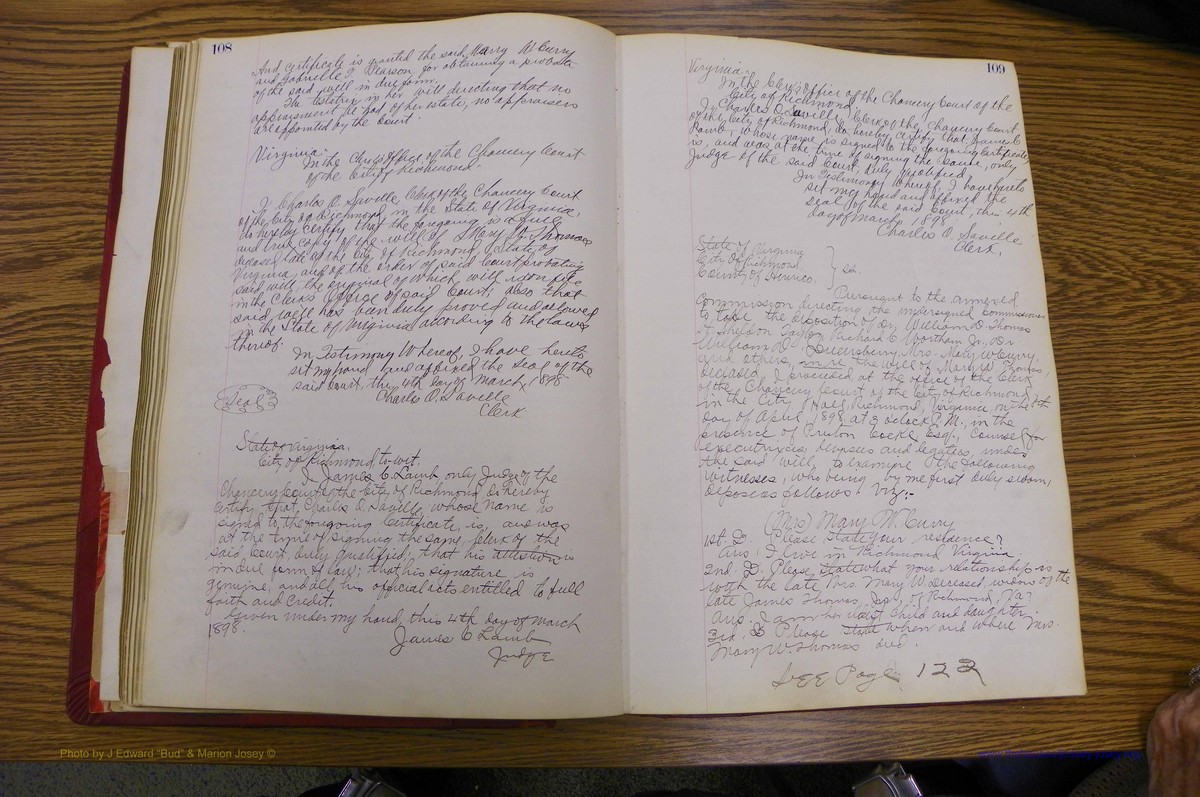 108
And certificate is granted the said Mary W Curry
and Gabriella T Pearson for obtaining a probate
of the said will in due form.
The testatrix in her will directing that no
appraisement be had of her estate, no appraisers
are appointed by the Court.
Virginia:
In the Clerks Office of the Chancery Court
of the City of Richmond.
I Charles O. Saville, Clerk of the Chancery Court
of the City of Richmond, in the State of Virginia,
do hereby certify that the foregoing is a full
and true copy of the will of Mary W. Thomas
deceased, late of the City of Richmond, State of
Virginia, and of the order of said Court probating
said will, the original of which will is on file
in the Clerk's Office of said Court; also that
said will has been duly proved and allowed
in the State of Virginia according to the laws
thereof.
In Testimony Whereof, I have hereto
set my hand and affixed the seal of the
said Court, this 4th day of March, 1898
Charles O. Saville
Clerk
Seal
State of Virginia.
City of Richmond, to wit.
I, James C. Lamb only Judge of the
Chancery Court of the City of Richmond, do hereby
certify, that Charles O. Saville, whose name is
signed to the foregoing Certificate, is, and was
at the time of signing the same, clerk of the
said Court, duly qualified; that his attestation is
in due form of law; that his signature is
genuine, and all his official acts entitled to full
faith and Credit.
Given under my hand, this 4th day of March
1898.
James C Lamb
Judge
109
Virginia:
In the Clerk's Office of the Chancery Court of the
City of Richmond
I, Charles O. Saville, Clerk of the Chancery Court
of the City of Richmond, do hereby certify that James C
Lamb, whose name is signed to the foregoing Certificate,
is, and was at the time of signing the same, only
Judge of the said Court, duly qualified.
In Testimony Whereof, I have hereto
set my hand and affixed the
seal of the said Court, this 4th
day of March, 1898.
Charles O. Saville
Clerk.
State of Virginia
City of Richmond
County of Henrico,
Pursuant to the annexed
Commission directing the undersigned commissioner
to take the deposition of Dr, William D. Thomas
Sheldon Taylor, Richard C Wortham Jr., Dr
William D. Quesnberry, Mrs. Mary W Curry,
and others, in re the will of Mary W. Thomas,
deceased, I proceeded at the office of the Clerk
of the Chancery Court of the City of Richmond
in the City Hall, Richmond, Virginia, on the 8th
day of April 1898 at 3 oclock P.M., in the
presence of Preston Cocke, Esq., Counsel for
executrixes, devisees and legatees, under
the said will, to examine the following
witnesses, who being by me first duly sworn,
depose as follows: viz:-
(Mrs) Mary W. Curry
1st. Q. Please state your residence?
Ans. I live in Richmond Virginia.
2nd. Q. Please state what your relationship is
with the late Mrs. Mary W. deceased, widow of the
late James Thomas, Jr., of Richmond, Va?
Ans. I am her child and daughter.
3rd. Q Please state when and where Mrs.
Mary W. Thomas died.
SEE Page 122
Photo by J Edward "Bud" & Marion Josey ©